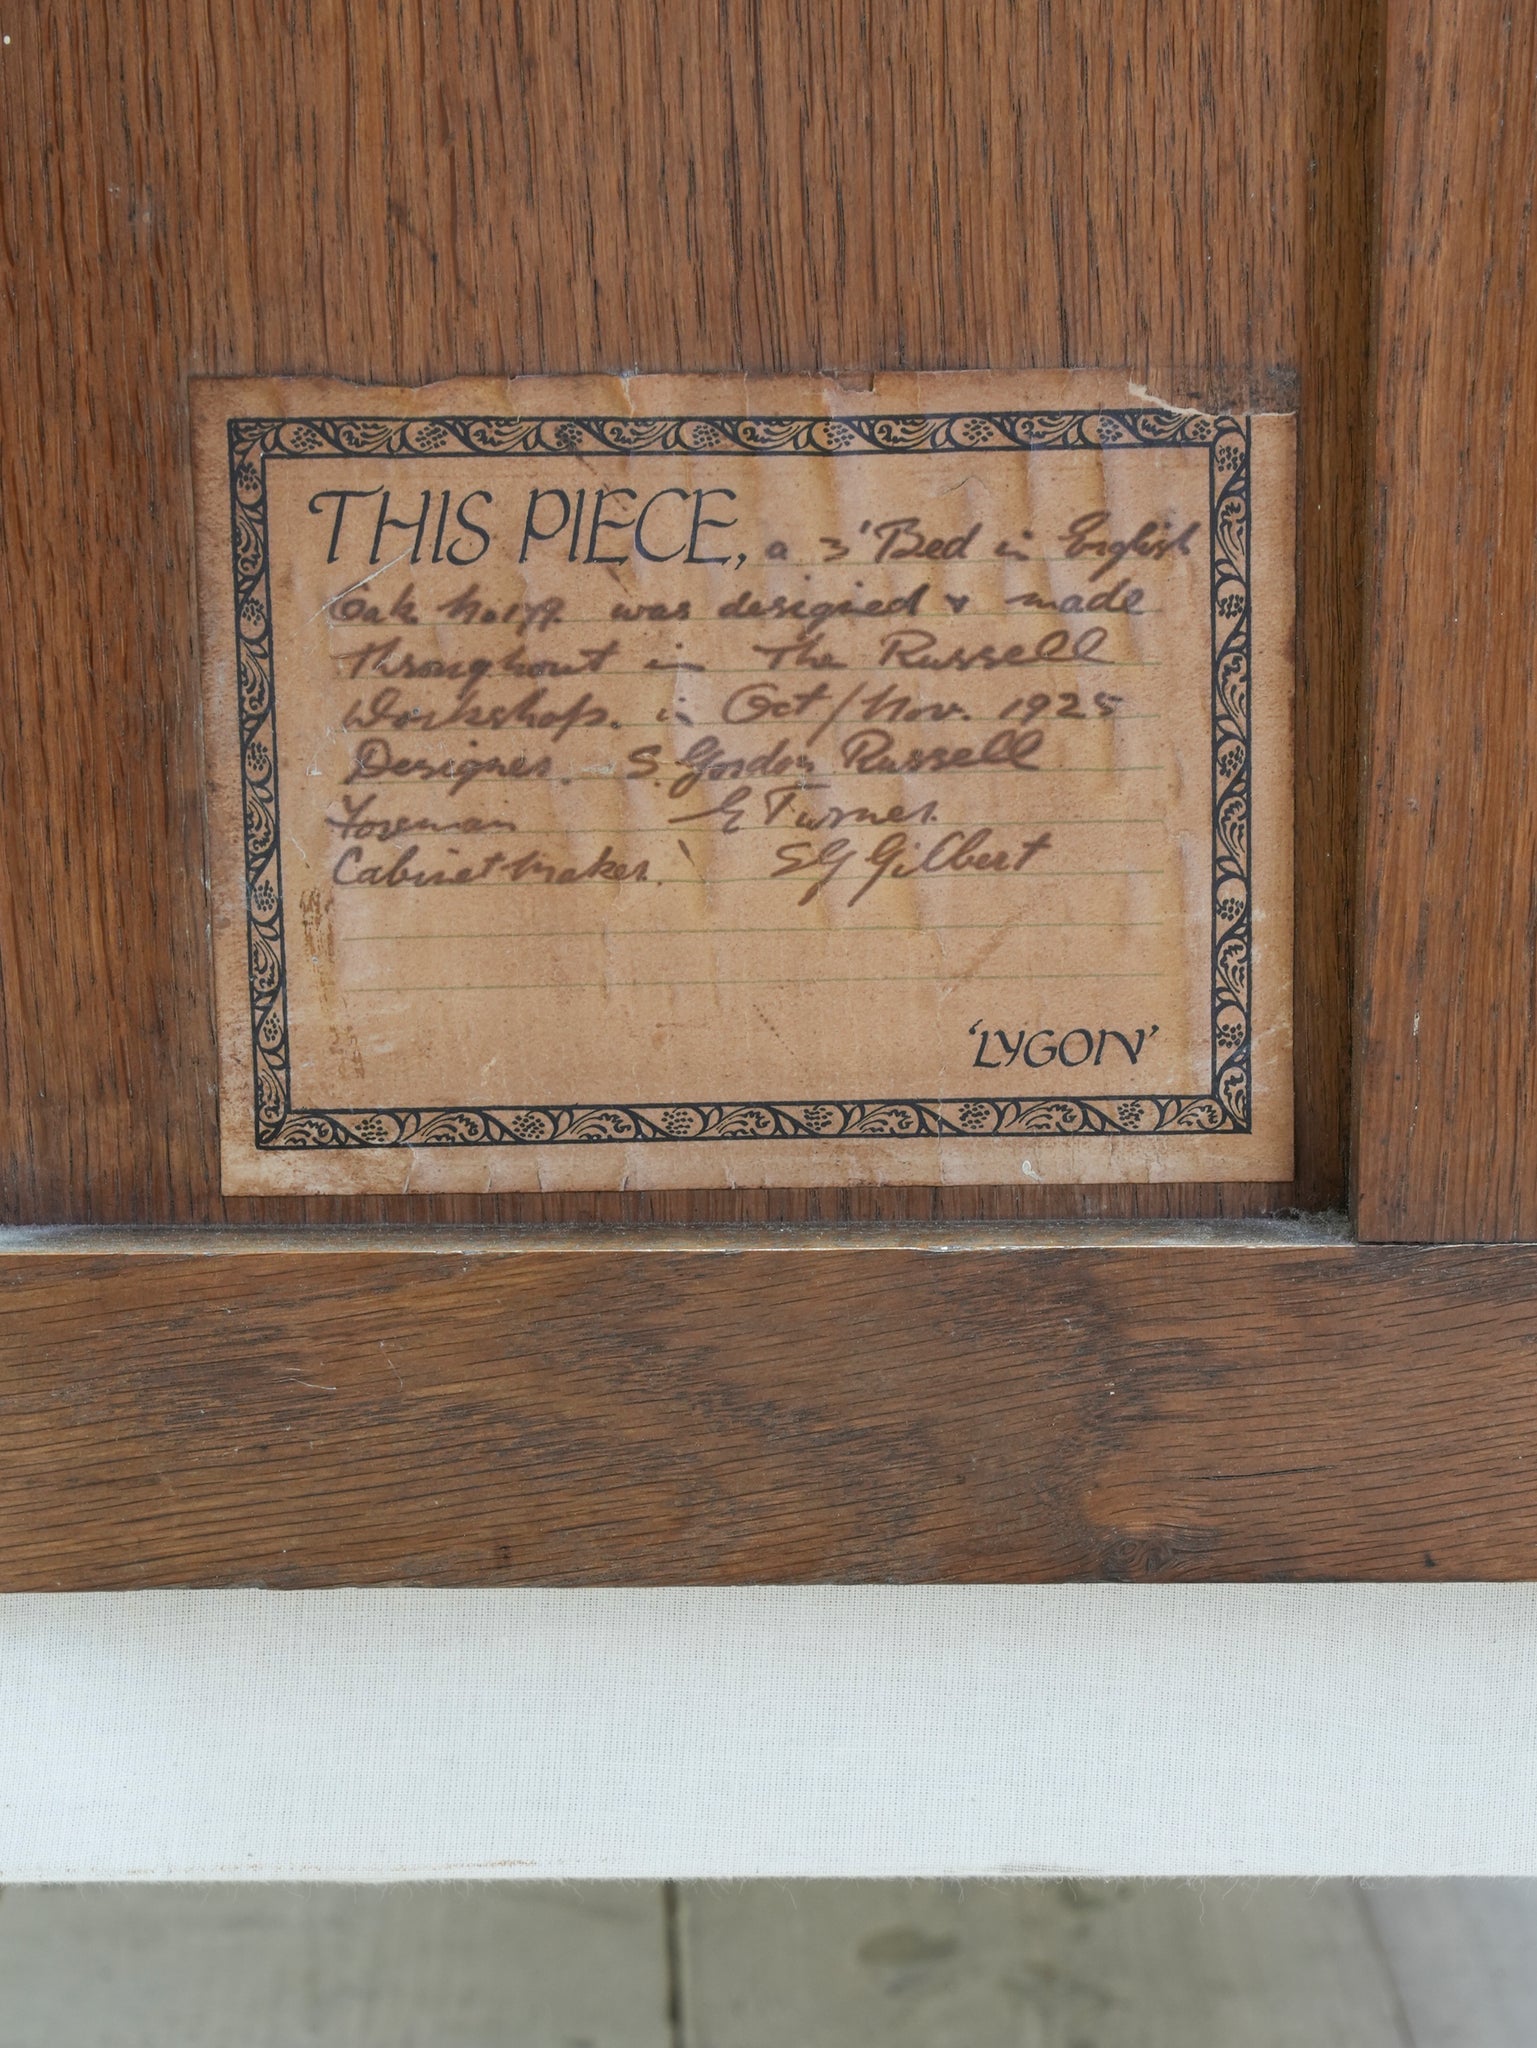 THIS PIECE, a 3' Bed in English
Oak No. 177. was designed & made
throughout in The Russell
Workshop. in Oct/Nov. 1925
Designer. S. Gordon Russell
Foreman E Turner.
Cabinet Maker. S G Gilbert
'LYGON'